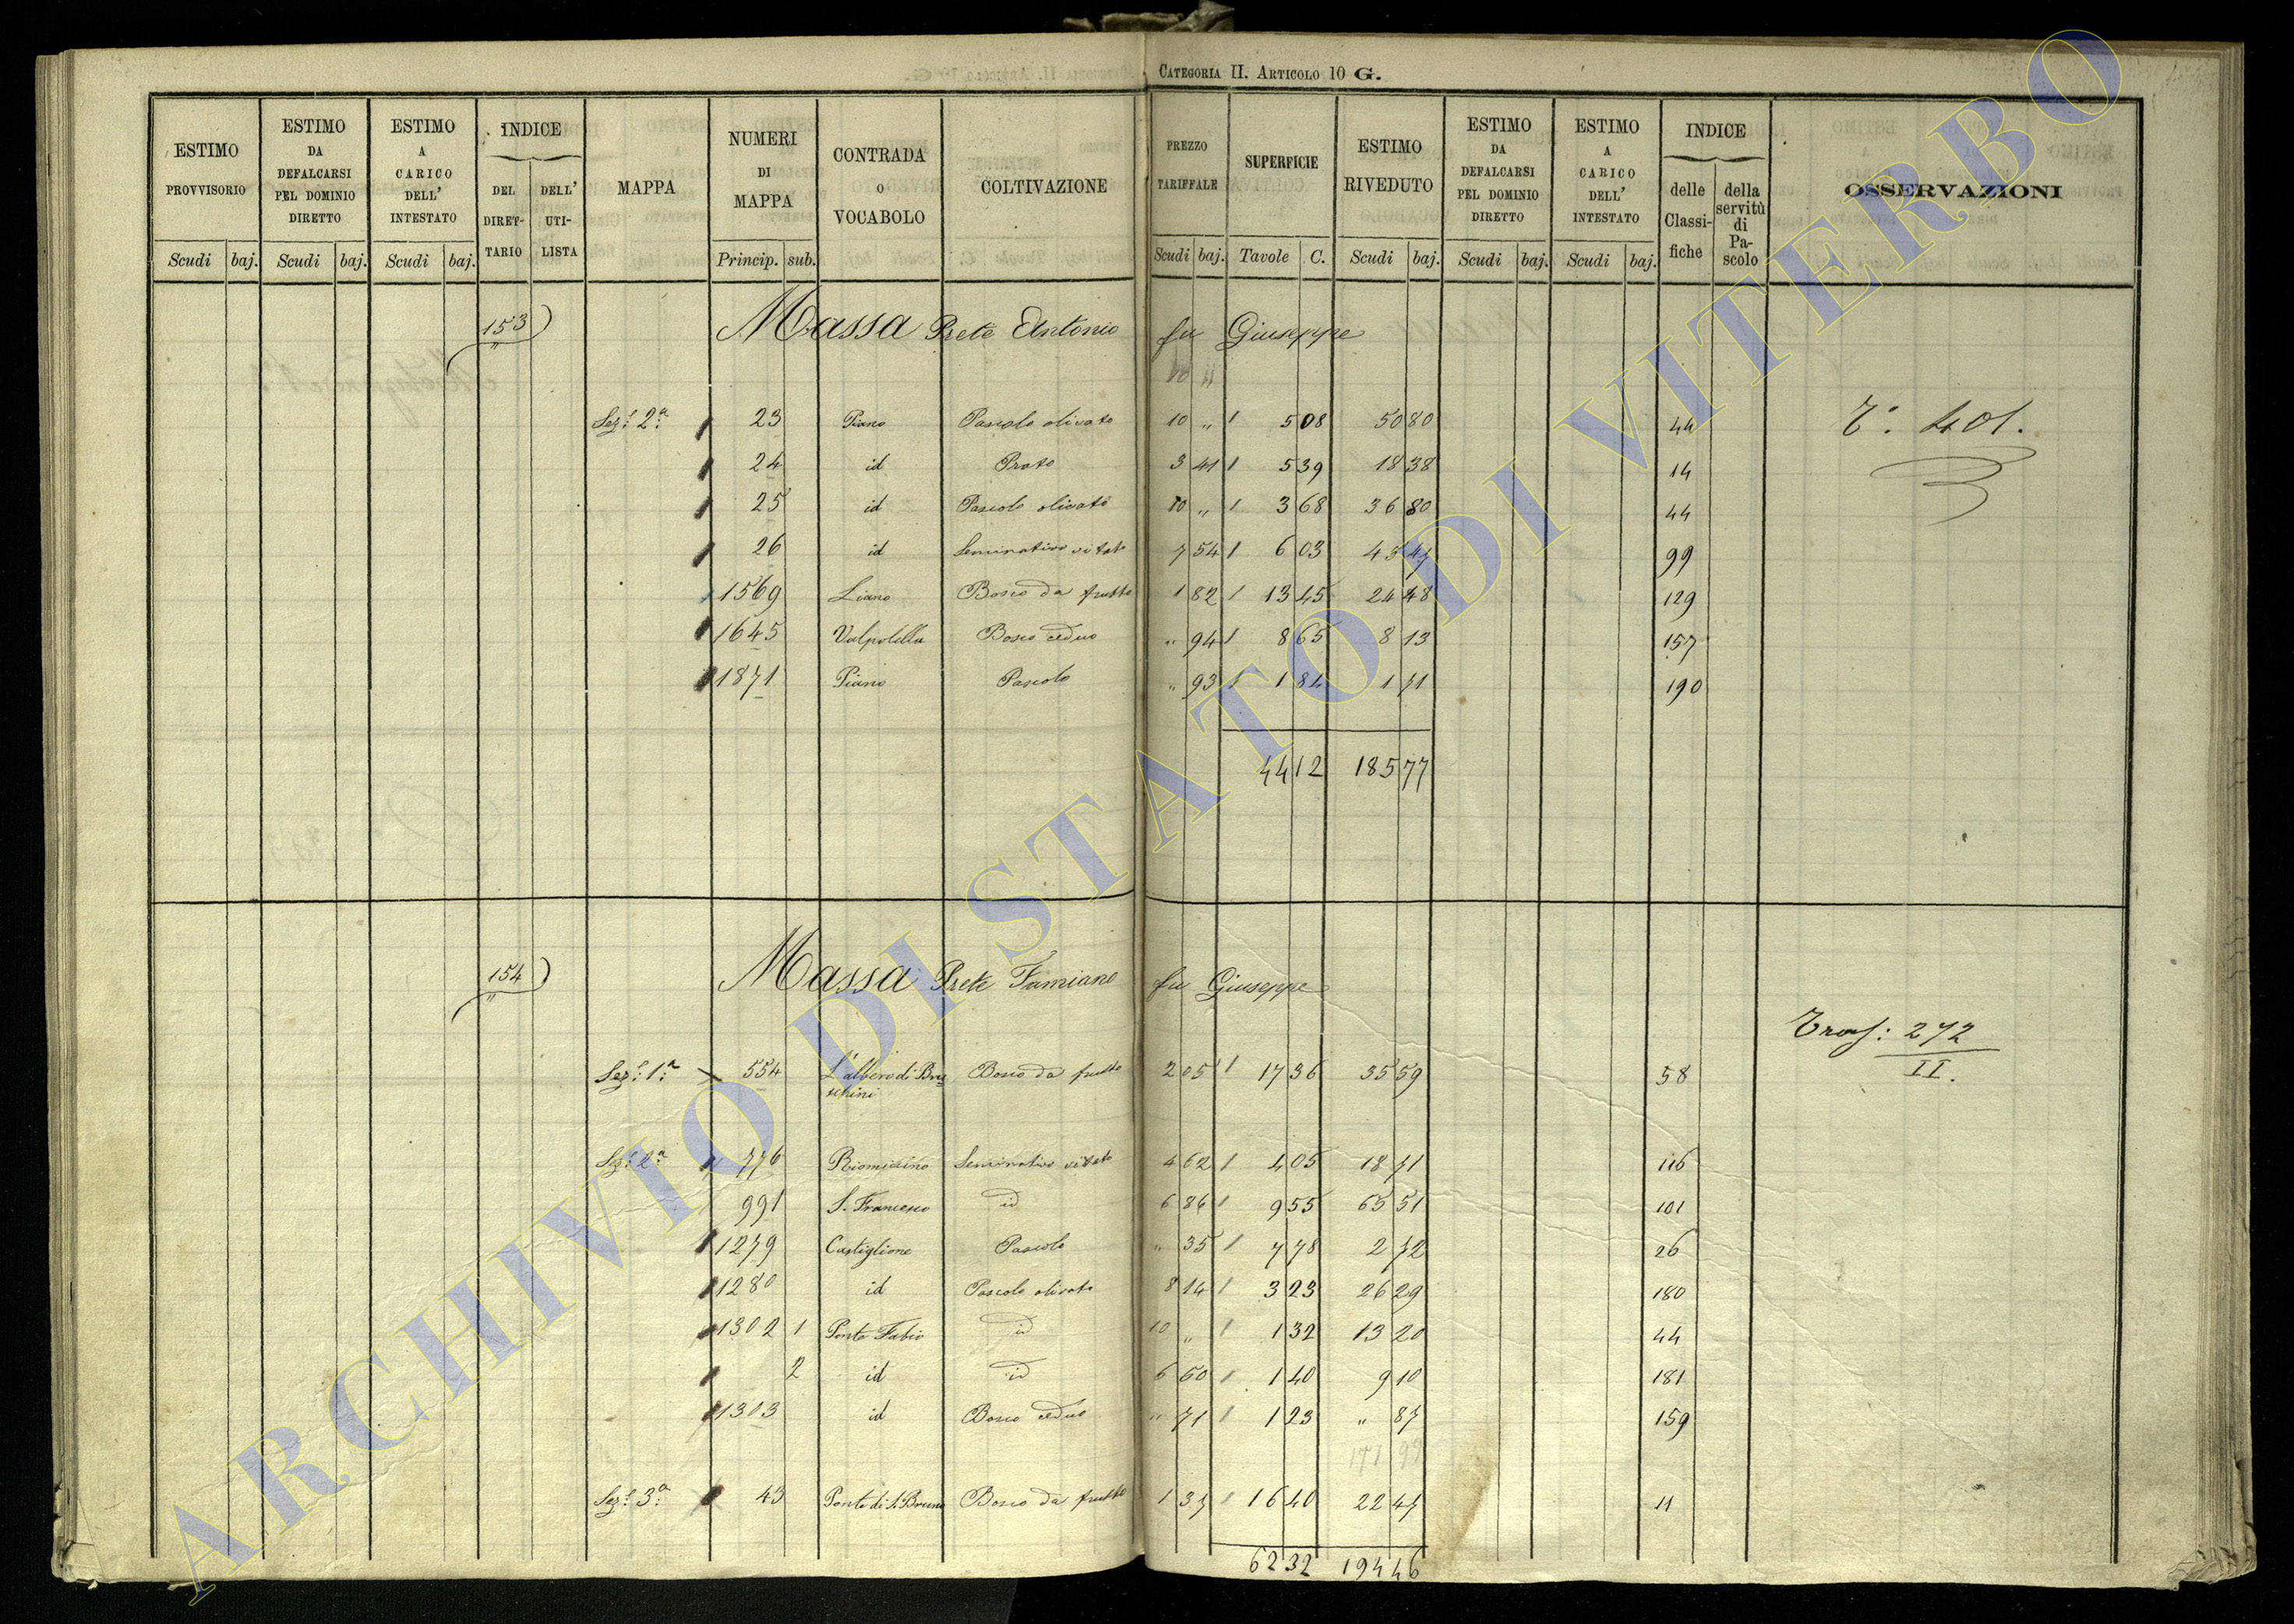 CATEGORIA II. ARTICOLO 10 G.
ESTIMO PROVVISORIO Scudi baj.
ESTIMO DA DEFALCARSI PEL DOMINIO DIRETTO Scudi baj.
ESTIMO A CARICO DELL' INTESTATO Scudi baj.
INDICE DEL DIRETTARIO DELL' UTILISTA
MAPPA
NUMERI DI MAPPA Princip. sub.
CONTRADA O VOCABOLO
COLTIVAZIONE
PREZZO TARIFFALE Scudi baj.
SUPERFICIE Tavole C.
ESTIMO RIVEDUTO Scudi baj.
ESTIMO DA DEFALCARSI PEL DOMINIO DIRETTO Scudi baj.
ESTIMO A CARICO DELL' INTESTATO Scudi baj.
INDICE delle Classifiche della servitù di Pascolo
OSSERVAZIONI
153 Massa Prete Antonio fu Giuseppe
Sez.e 2.a 23 Piano Pascolo olivato 10 „ 5 08 50 80 44 T.o 401.
24 id Prato 3 41 5 39 18 38 14
25 id Pascolo olivato 10 „ 3 68 36 80 44
26 id Seminativo vitato 7 54 6 03 45 47 99
1569 Liano Bosco da frutto 1 82 13 45 24 48 129
1645 Valpolella Bosco ceduo „ 94 8 65 8 13 157
1871 Piano Pascolo „ 93 1 84 1 71 190
44 12 185 77
154 Massa Prete Famiano fu Giuseppe
Trasf: 272
II.
Sez.e 1.a 554 L'albero di Bru Bosco da frutto 2 05 17 36 35 59 58
schini
Sez.e 2.a 776 Riomicino Seminativo vitato 4 62 4 05 18 71 116
991 S. Francesco id 6 86 9 55 65 51 101
1279 Castiglione Pascolo „ 35 7 78 2 72 26
1280 id Pascolo olivato 8 14 3 23 26 29 180
1302 1 Ponte Fabio id 10 „ 1 32 13 20 44
2 id id 6 50 1 40 9 10 181
1303 id Bosco ceduo „ 71 1 23 „ 87 159
171 99
Sez.e 3.a 43 Ponte di S. Bruno Bosco da frutto 1 37 16 40 22 47 11
62 32 194 46
ARCHIVIO DI STATO DI VITERBO